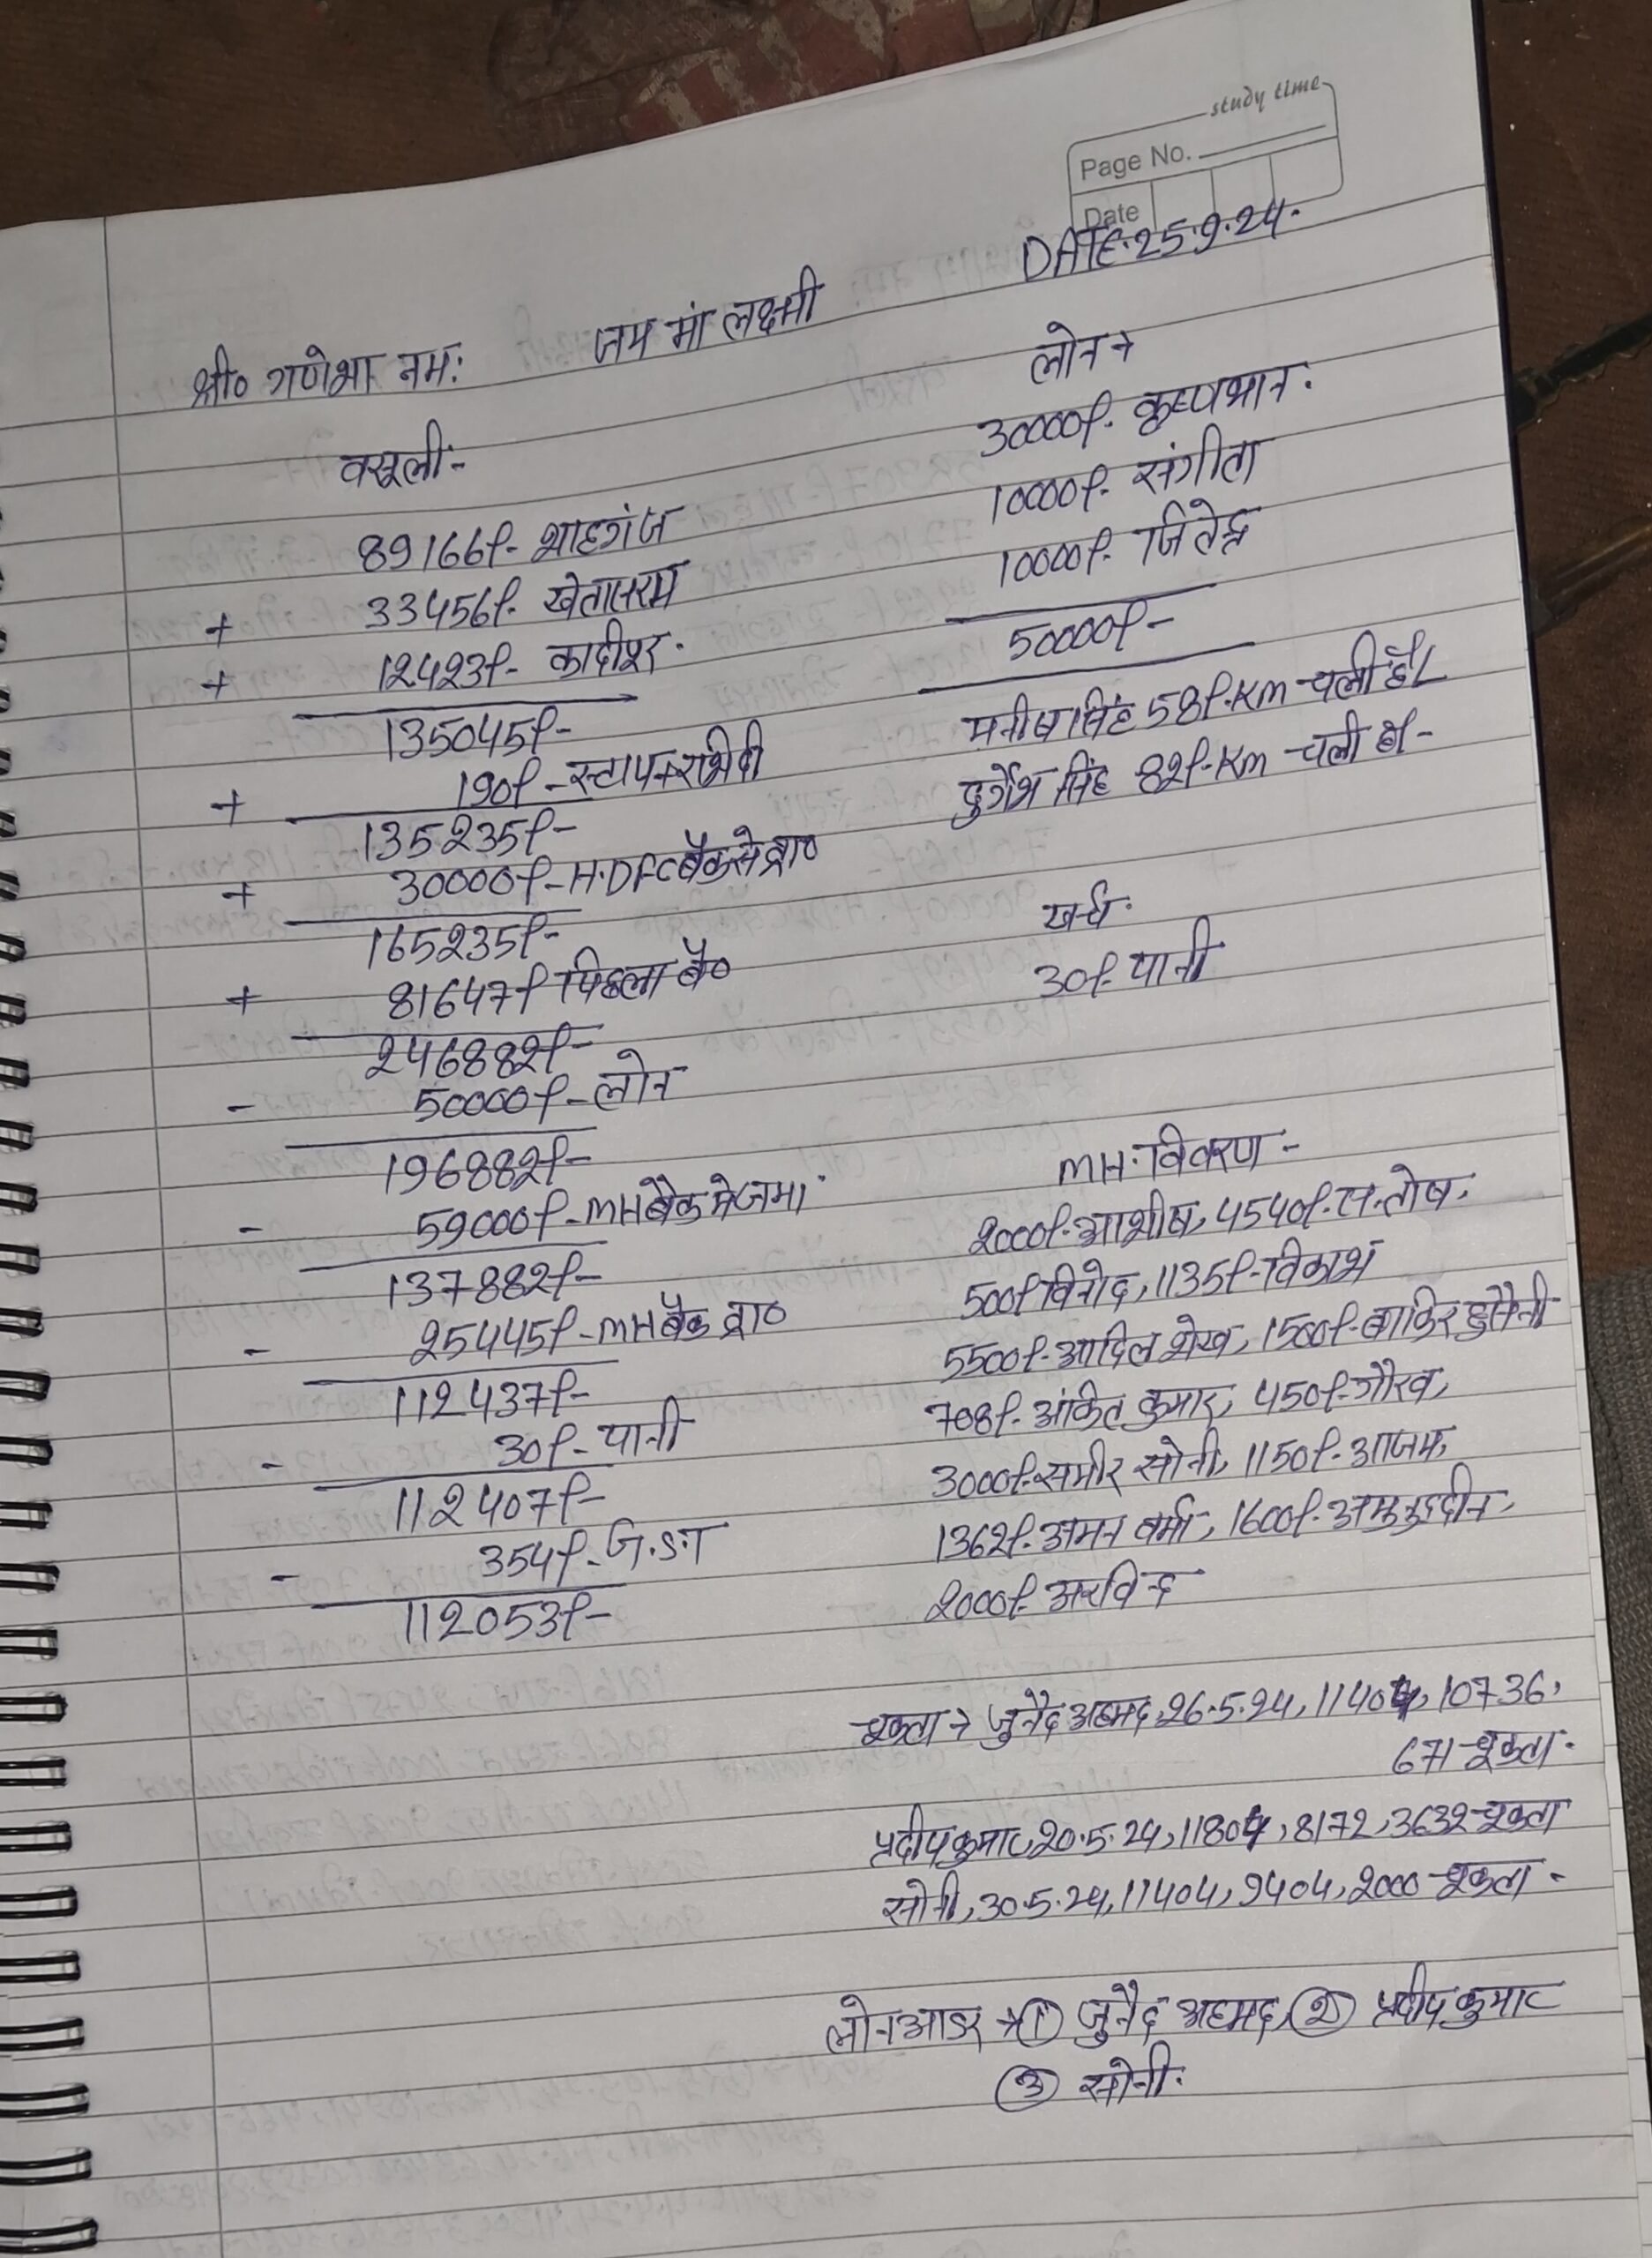 study time
Page No.
Date
DATE.25.9.24.
श्री० गणेशा नमः जय मां लक्ष्मी
वसूली-
89166/- शाहगंज
+ 33456/- खेतासराय
+ 12423/- कादीपुर.
135045/-
+ 190/- स्टाप+रसीदी
135235/-
+ 30000/- H.DFC बैंक से प्रा०
165235/-
+ 81647/- पिछला बै०
246882/-
- 50000/- लोन
196882/-
- 59000/- MH बैंक मे जमा.
137882/-
- 25445/- MH बैंक प्रा०
112437/-
- 30/- पानी
112407/-
- 354/- G.S.T
112053/-
लोन →
30000/- कृष्णभान.
10000/- संगीता
10000/- जितेन्द्र
50000/-
मनीष सिंह 58/-KM चली है/
दुर्गेश सिंह 82/-KM चली है-
खर्च.
30/- पानी
MH. विवरण -
2000/- आशीष, 4540/- सन्तोष,
500/- विनोद, 1135/- विकाश
5500/- आदिल शेख, 1500/- बाकिर हुसैनी
708/- अंकित कुमार, 450/- गौरव,
3000/- समीर सोनी, 1150/- आजम,
1362/- अमन वर्मा, 1600/-
2000/- अरविन्द
चुकता → जुनैद अहमद, 26.5.24, 11404, 10736,
671 चुकता.
प्रदीप कुमार, 20.5.24, 11804, 8172, 3632 चुकता
सोनी, 30.5.24, 11404, 9404, 2000 चुकता -
लोन आडर → ① जुनैद अहमद, ② प्रदीप कुमार
③ सोनी.